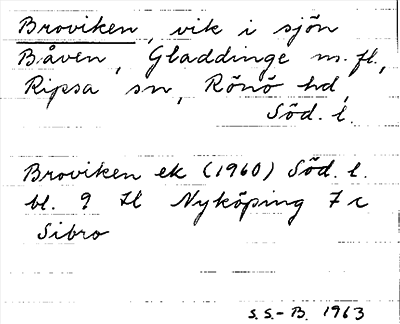 Broviken, vik i sjön
Båven, Gladdinge m. fl.,
Ripsa sn, Rönö hd,
Söd. l.
Broviken ek (1960) Söd. l.
bl. 9 Nyköping 7 c
Sibro
S.S.-B. 1963